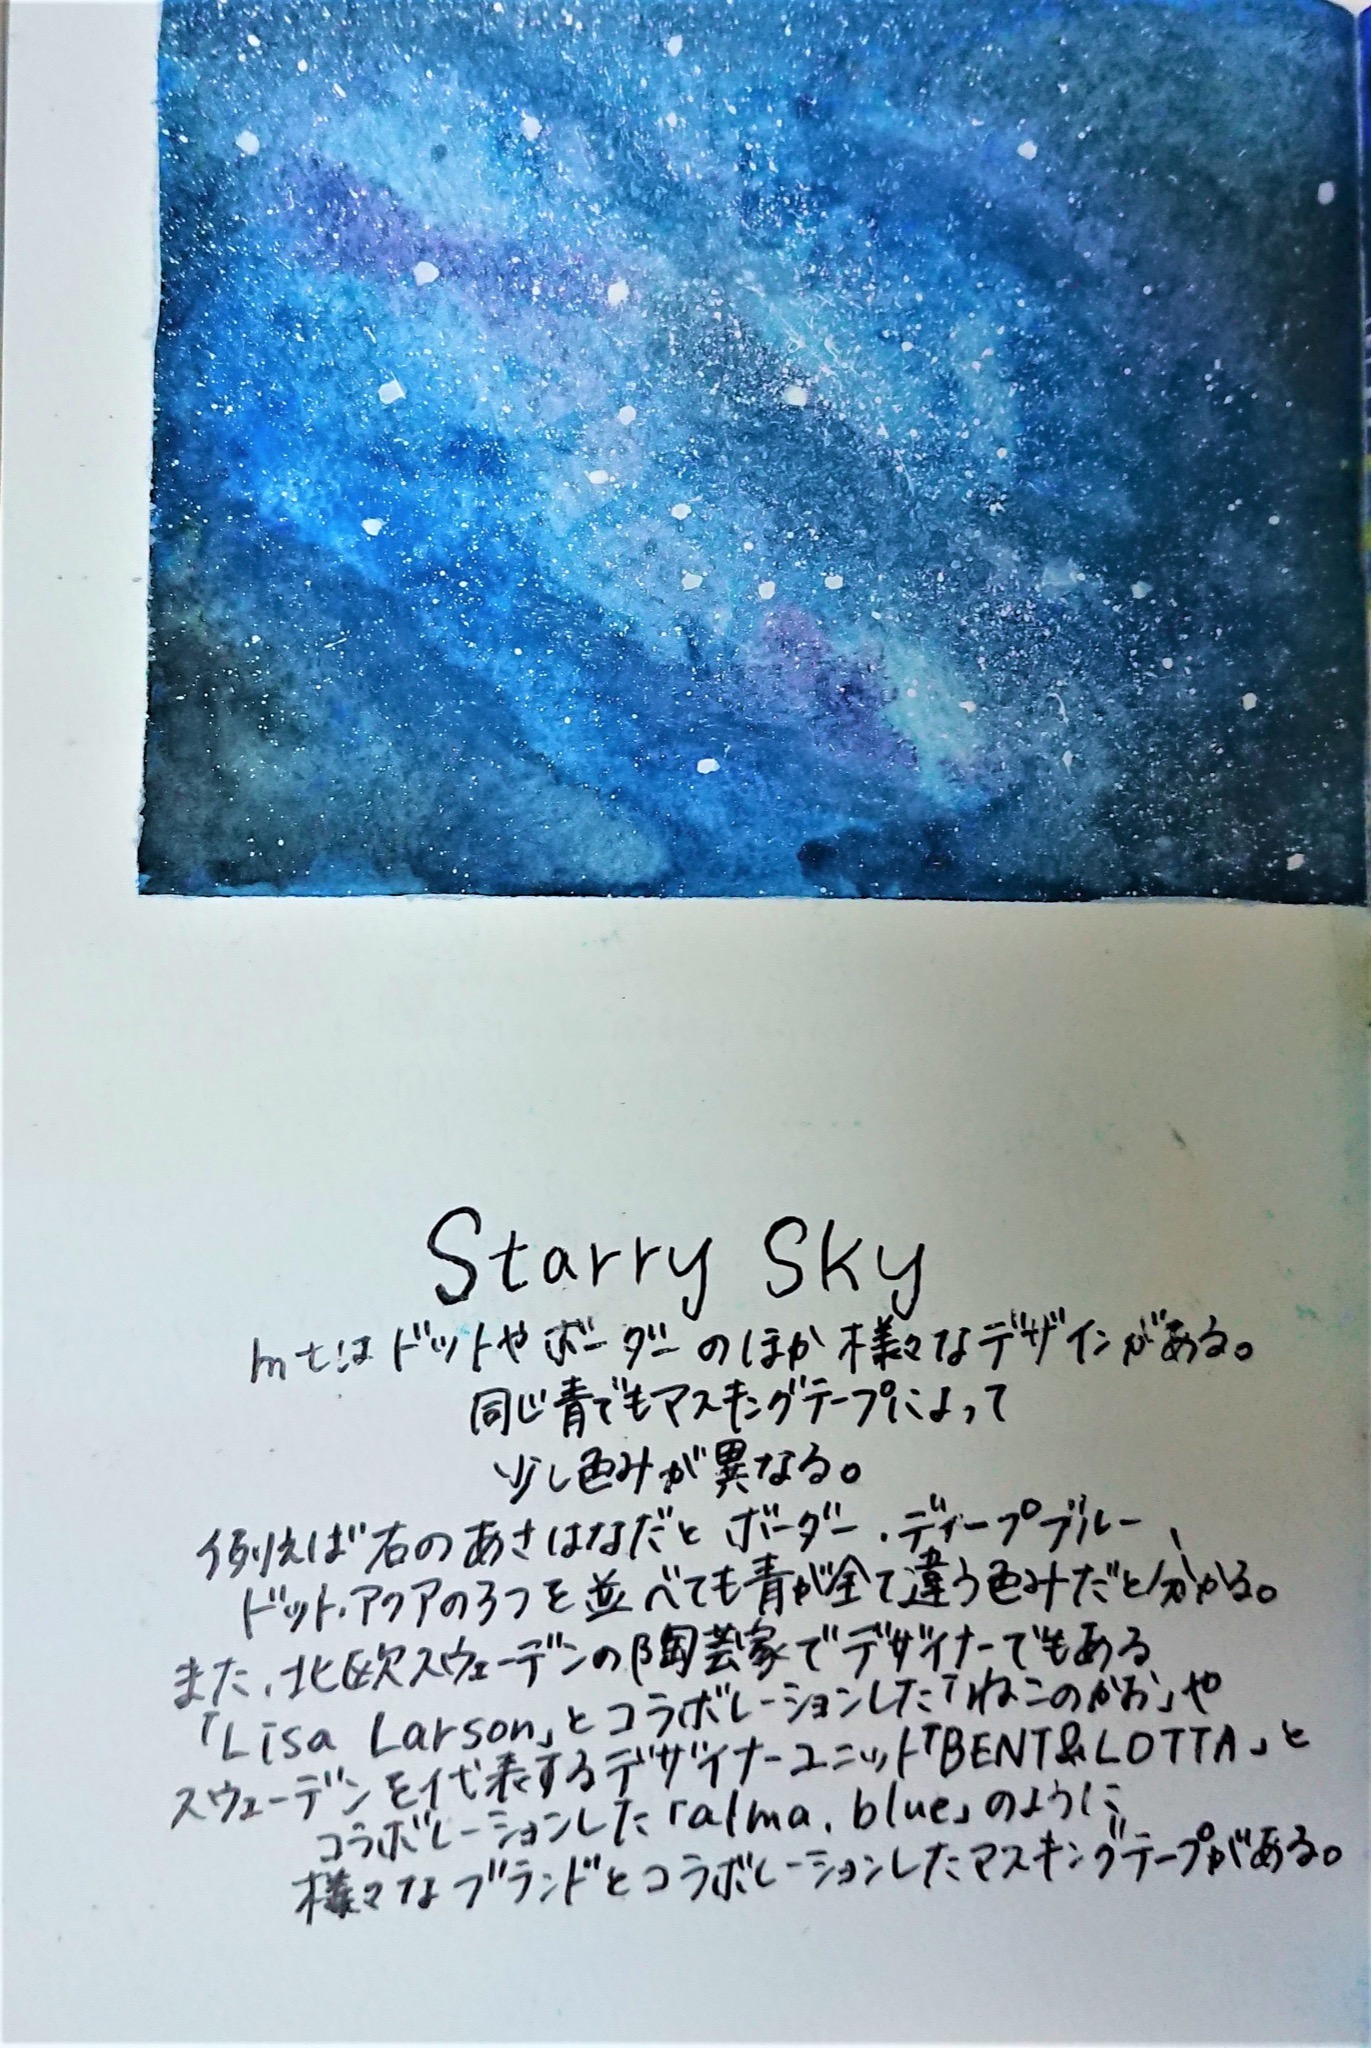 Starry Sky
mtはドットやボーダーのほか様々なデザインがある。
同じ青でもマスキングテープによって
少し色みが異なる。
例えば右のあさはなだとボーダー・ディープブルー、
ドット・アクアの3つを並べても青が全て違う色みだと分かる。
また、北欧スウェーデンの陶芸家でデザイナーでもある
「Lisa Larson」とコラボレーションした「ねこのかお」や
スウェーデンを代表するデザイナーユニット「BENT&LOTTA」と
コラボレーションした「alma. blue」のように
様々なブランドとコラボレーションしたマスキングテープがある。